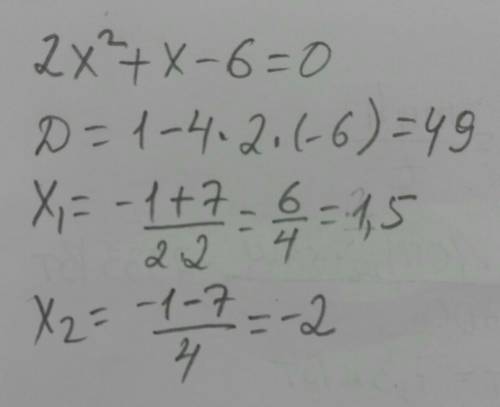 2x² + x - 6 = 0
D = 1 - 4 · 2 · (-6) = 49
x₁ = (-1 + 7)/(2·2) = 6/4 = 1,5
x₂ = (-1 - 7)/4 = -2